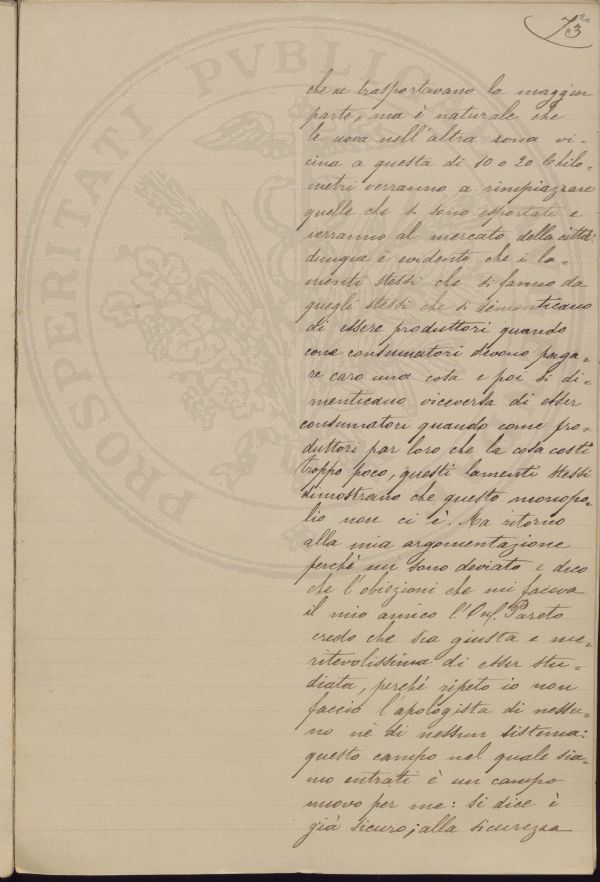 73
20
PROSPERITATI PVBLICAE
che ne trasportavano la maggior
parte, ma è naturale che
le uova nell'altra zona vi-
cina a questa di 10 o 20 Chilo-
metri verranno a rimpiazzare
quelle che si sono esportate e
verranno al mercato della città:
dunque è evidente che i la-
menti stessi che si fanno da
quegli stessi che si dimenticano
di essere produttori quando
come consumatori devono paga-
re caro una cosa e poi si di-
menticano viceversa di esser
consumatori quando come pro-
duttori par loro che la cosa costi
troppo poco, questi lamenti stessi
dimostrano che questo monopo-
lio non ci è. Ma ritorno
alla mia argomentazione
perché mi sono deviato e dico
che l'obiezioni che mi faceva
il mio amico l'On. Pareto
credo che sia giusta e me-
ritevolissima di esser stu-
diata, perché ripeto io non
faccio l'apologista di nessu-
no nè di nessun sistema:
questo campo nel quale sia-
mo entrati è un campo
nuovo per me: si dice è
già sicuro; alla sicurezza